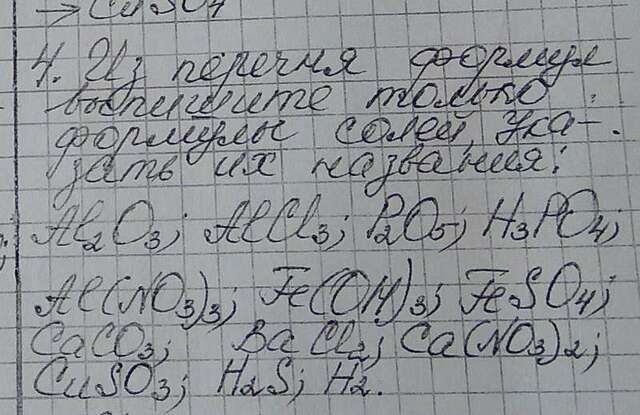 → CuSO4
4. Из перечня формул
выпишите только
формулы солей, ука-
зать их названия:
Al2O3; AlCl3; P2O5; H3PO4;
Al(NO3)3; Fe(OH)3; FeSO4;
CaCO3; BaCl2; Ca(NO3)2;
CuSO3; H2S; H2.